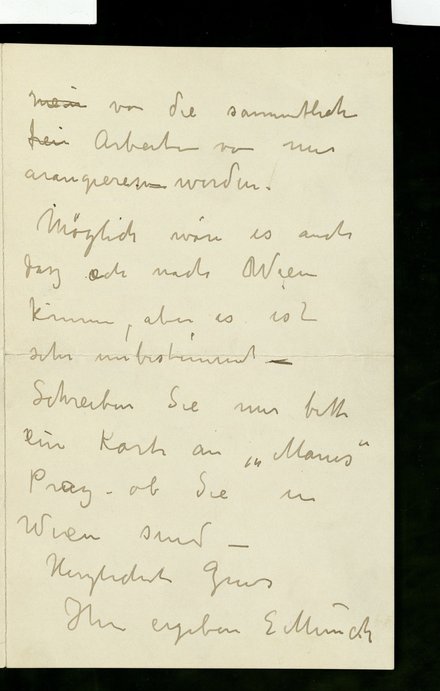 mein von die sammtliche
Arbeiten von mir
arangieren werden.
Möglich wäre es auch
dasz ich nach Wien
komme, aber es ist
sehr unbestimmt —
Schreiben Sie mir bitte
ein Karte an „Manes“
Prag - ob Sie in
Wien sind —
Herzlichst Grus
Ihr ergeben E Munch